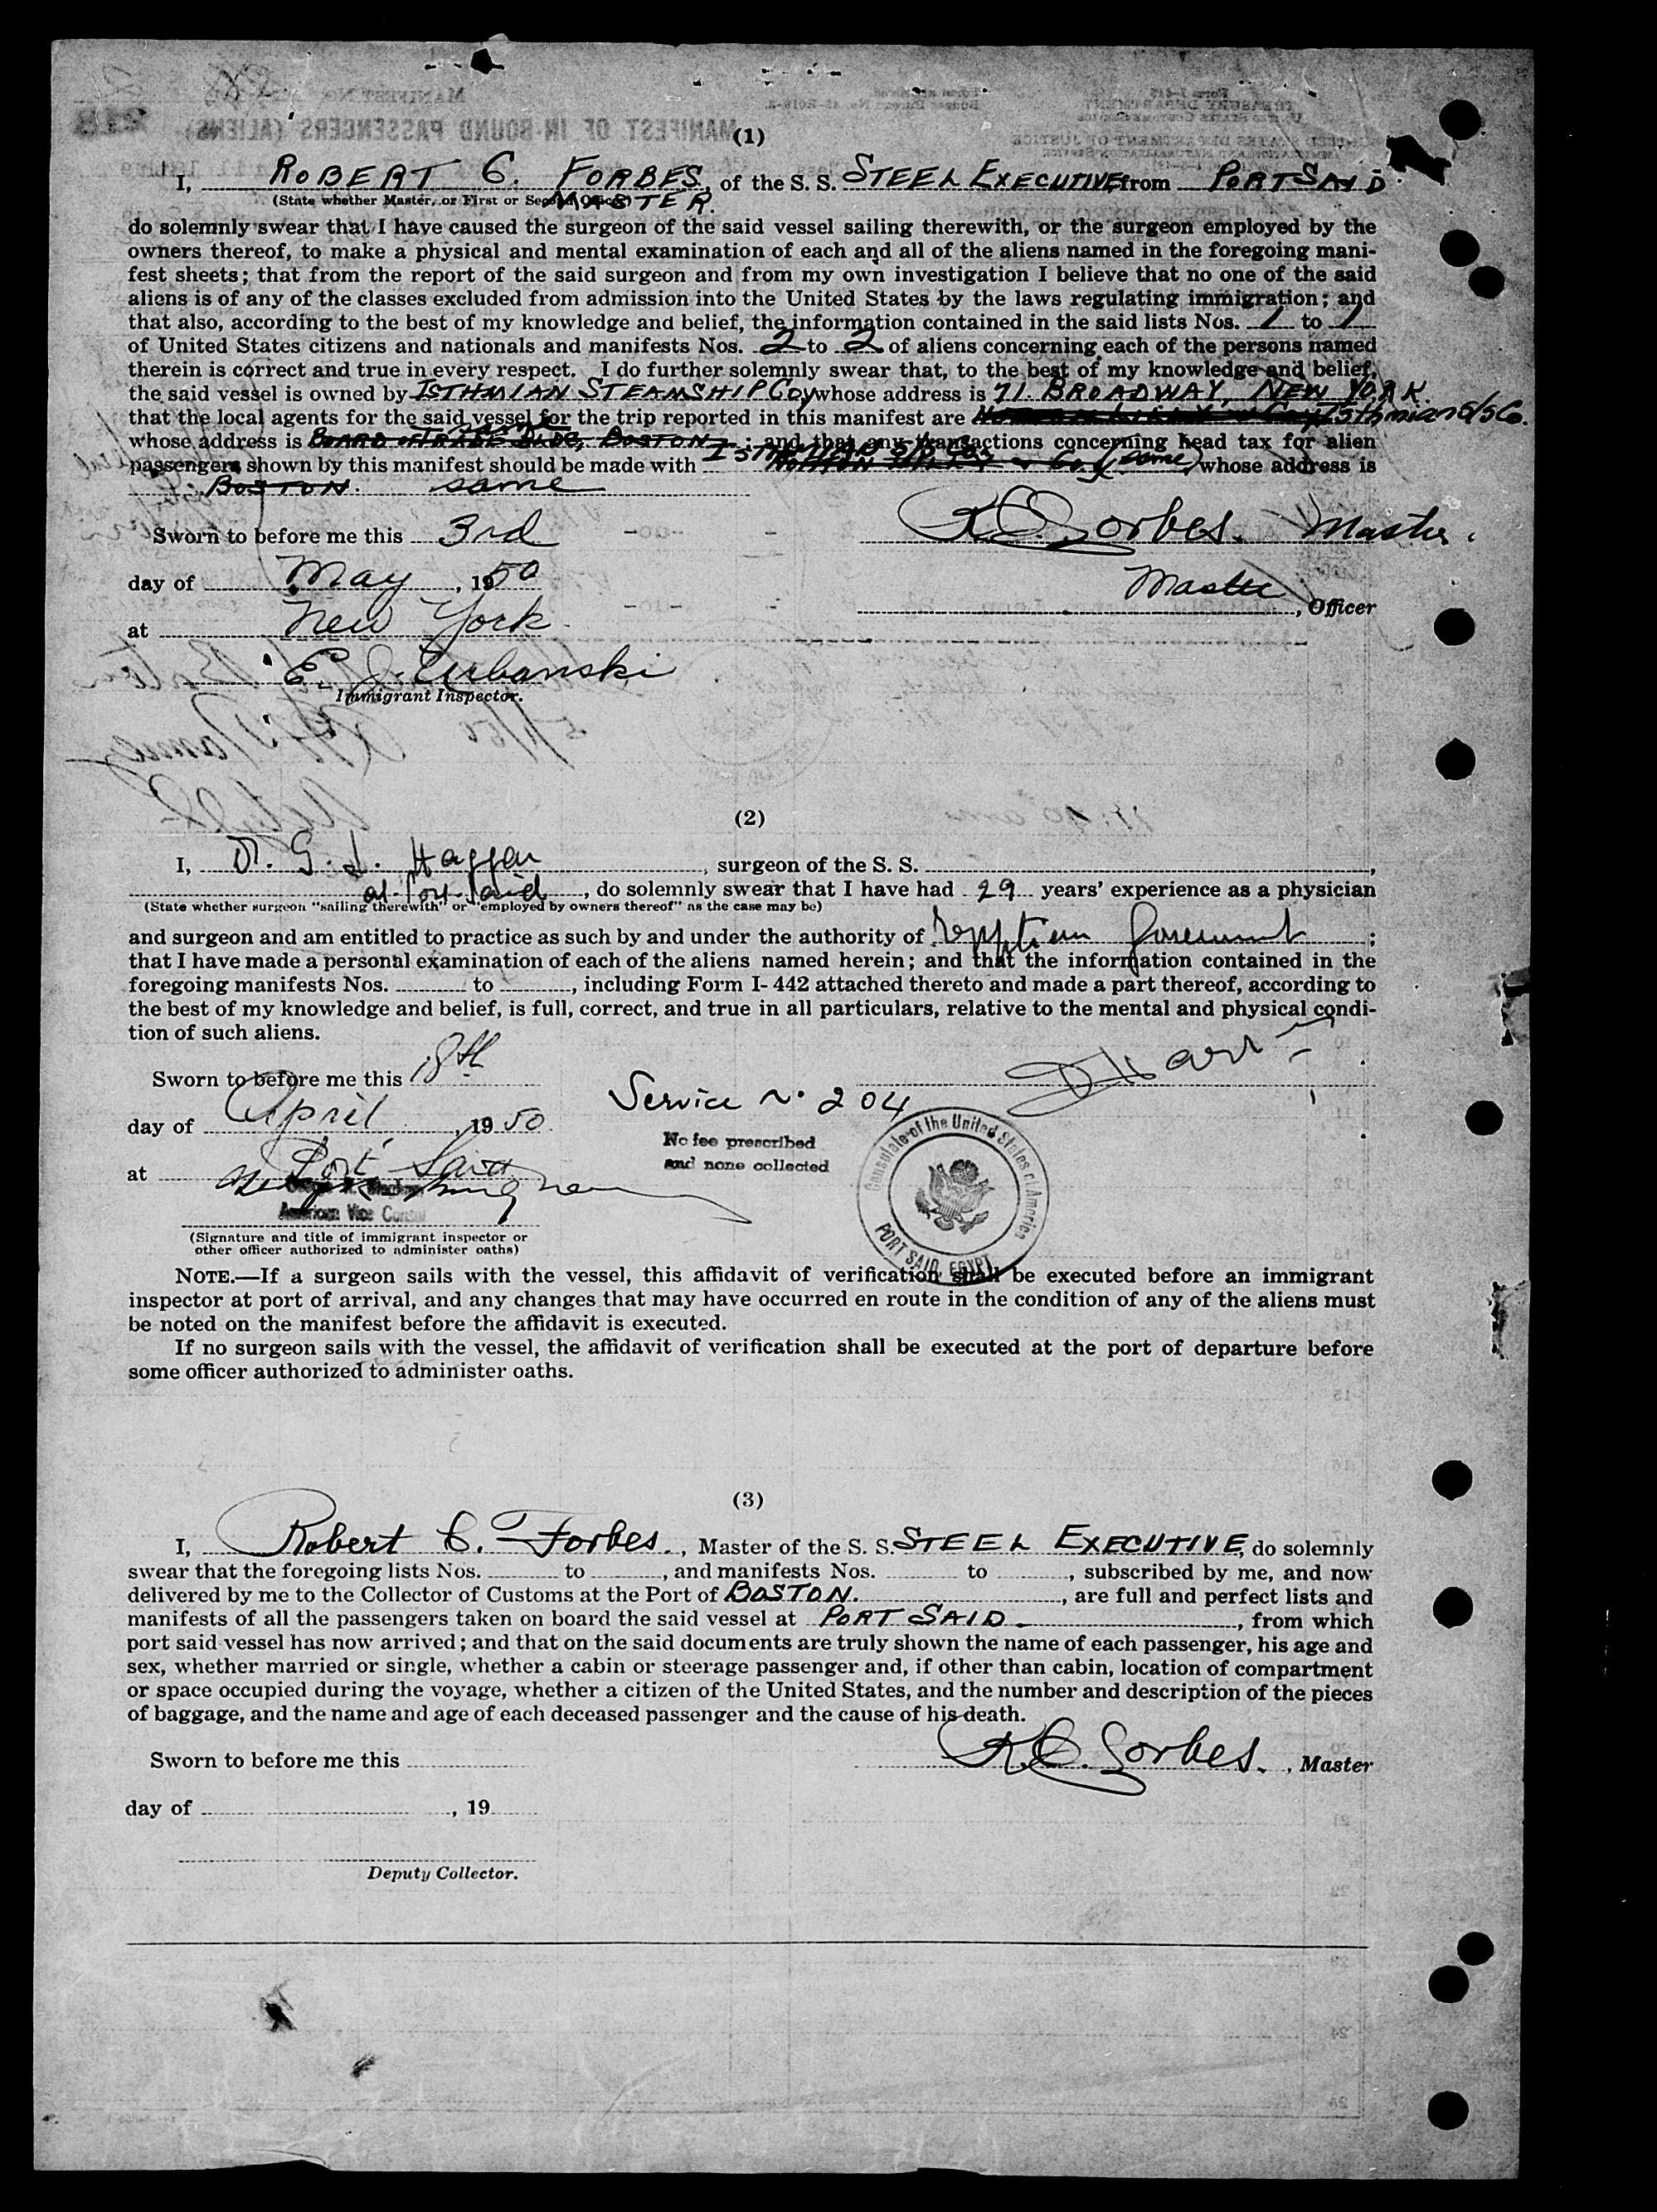 (1)
I, ROBERT C. FORBES, of the S. S. STEEL EXECUTIVE from PORT SAID
(State whether Master, or First or Second Officer) MASTER.
do solemnly swear that I have caused the surgeon of the said vessel sailing therewith, or the surgeon employed by the
owners thereof, to make a physical and mental examination of each and all of the aliens named in the foregoing mani-
fest sheets; that from the report of the said surgeon and from my own investigation I believe that no one of the said
aliens is of any of the classes excluded from admission into the United States by the laws regulating immigration; and
that also, according to the best of my knowledge and belief, the information contained in the said lists Nos. 1 to 1
of United States citizens and nationals and manifests Nos. 2 to 2 of aliens concerning each of the persons named
therein is correct and true in every respect. I do further solemnly swear that, to the best of my knowledge and belief,
the said vessel is owned by ISTHMIAN STEAMSHIP Coy whose address is 71. BROADWAY, NEW YORK.
that the local agents for the said vessel for the trip reported in this manifest are Isthmian S/S Co.
same
whose address is BOARD OF TRADE BLDG, BOSTON; and that any transactions concerning head tax for alien
passengers shown by this manifest should be made with ISTHMIAN S/S Co. (same) whose address is
BOSTON. same
Sworn to before me this 3rd RC Forbes. Master.
day of May, 1950
Master, Officer
at New York
E. J. Urbanski
Immigrant Inspector.
(2)
I, Dr. G. L. , surgeon of the S. S. ,
at Port-Said, do solemnly swear that I have had 29 years' experience as a physician
(State whether surgeon "sailing therewith" or "employed by owners thereof" as the case may be)
and surgeon and am entitled to practice as such by and under the authority of Egyptian Government;
that I have made a personal examination of each of the aliens named herein; and that the information contained in the
foregoing manifests Nos. to , including Form I-442 attached thereto and made a part thereof, according to
the best of my knowledge and belief, is full, correct, and true in all particulars, relative to the mental and physical condi-
tion of such aliens.
Sworn to before me this 18th
Service No 204
day of April, 1950
No fee prescribed
and none collected
at Port Said
American Vice Consul
Consulate of the United States of America
PORT SAID, EGYPT
(Signature and title of immigrant inspector or
other officer authorized to administer oaths)
NOTE.—If a surgeon sails with the vessel, this affidavit of verification shall be executed before an immigrant
inspector at port of arrival, and any changes that may have occurred en route in the condition of any of the aliens must
be noted on the manifest before the affidavit is executed.
If no surgeon sails with the vessel, the affidavit of verification shall be executed at the port of departure before
some officer authorized to administer oaths.
(3)
I, Robert C. Forbes., Master of the S. S. STEEL EXECUTIVE, do solemnly
swear that the foregoing lists Nos. to , and manifests Nos. to , subscribed by me, and now
delivered by me to the Collector of Customs at the Port of BOSTON. , are full and perfect lists and
manifests of all the passengers taken on board the said vessel at PORT SAID , from which
port said vessel has now arrived; and that on the said documents are truly shown the name of each passenger, his age and
sex, whether married or single, whether a cabin or steerage passenger and, if other than cabin, location of compartment
or space occupied during the voyage, whether a citizen of the United States, and the number and description of the pieces
of baggage, and the name and age of each deceased passenger and the cause of his death.
Sworn to before me this R.C. Forbes. , Master
day of , 19
Deputy Collector.